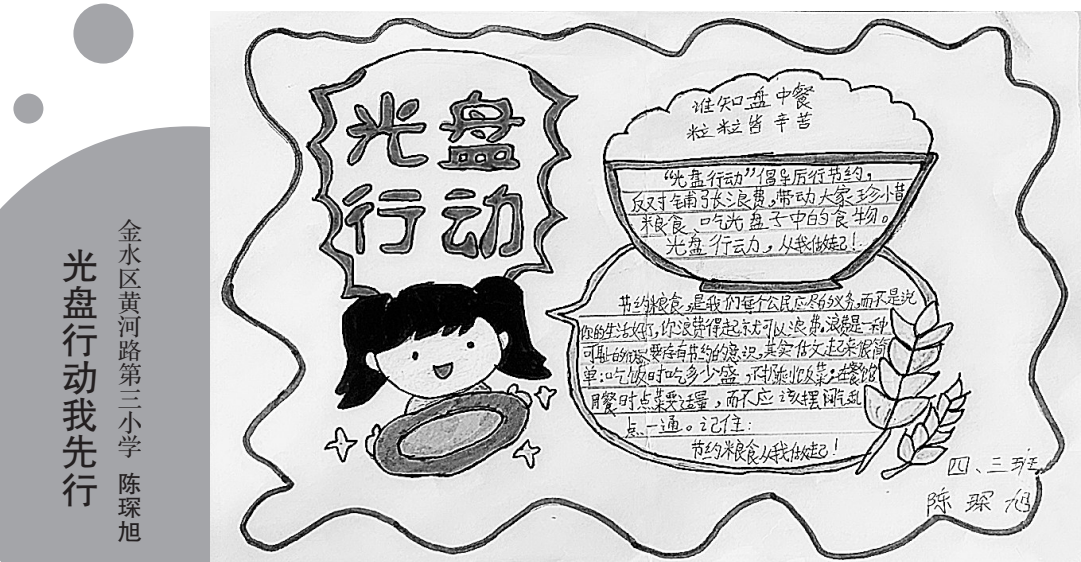 光盘行动我先行
金水区黄河路第三小学 陈琛旭
光盘
行动
谁知盘中餐
粒粒皆辛苦
“光盘行动”倡导厉行节约，
反对铺张浪费，带动大家珍惜
粮食、吃光盘子中的食物。
光盘行动，从我做起！
节约粮食，是我们每个公民应尽的义务，而不是说
你的生活好了，你浪费得起就可以浪费。浪费是一种
可耻的 要存有节约的意识，其实 起来很简
单：吃饭时吃多少盛 不扔剩饭菜；在餐馆
用餐时点菜要适量，而不应该摆阔气乱
点一通。记住：
节约粮食从我做起！
四、三班
陈琛旭